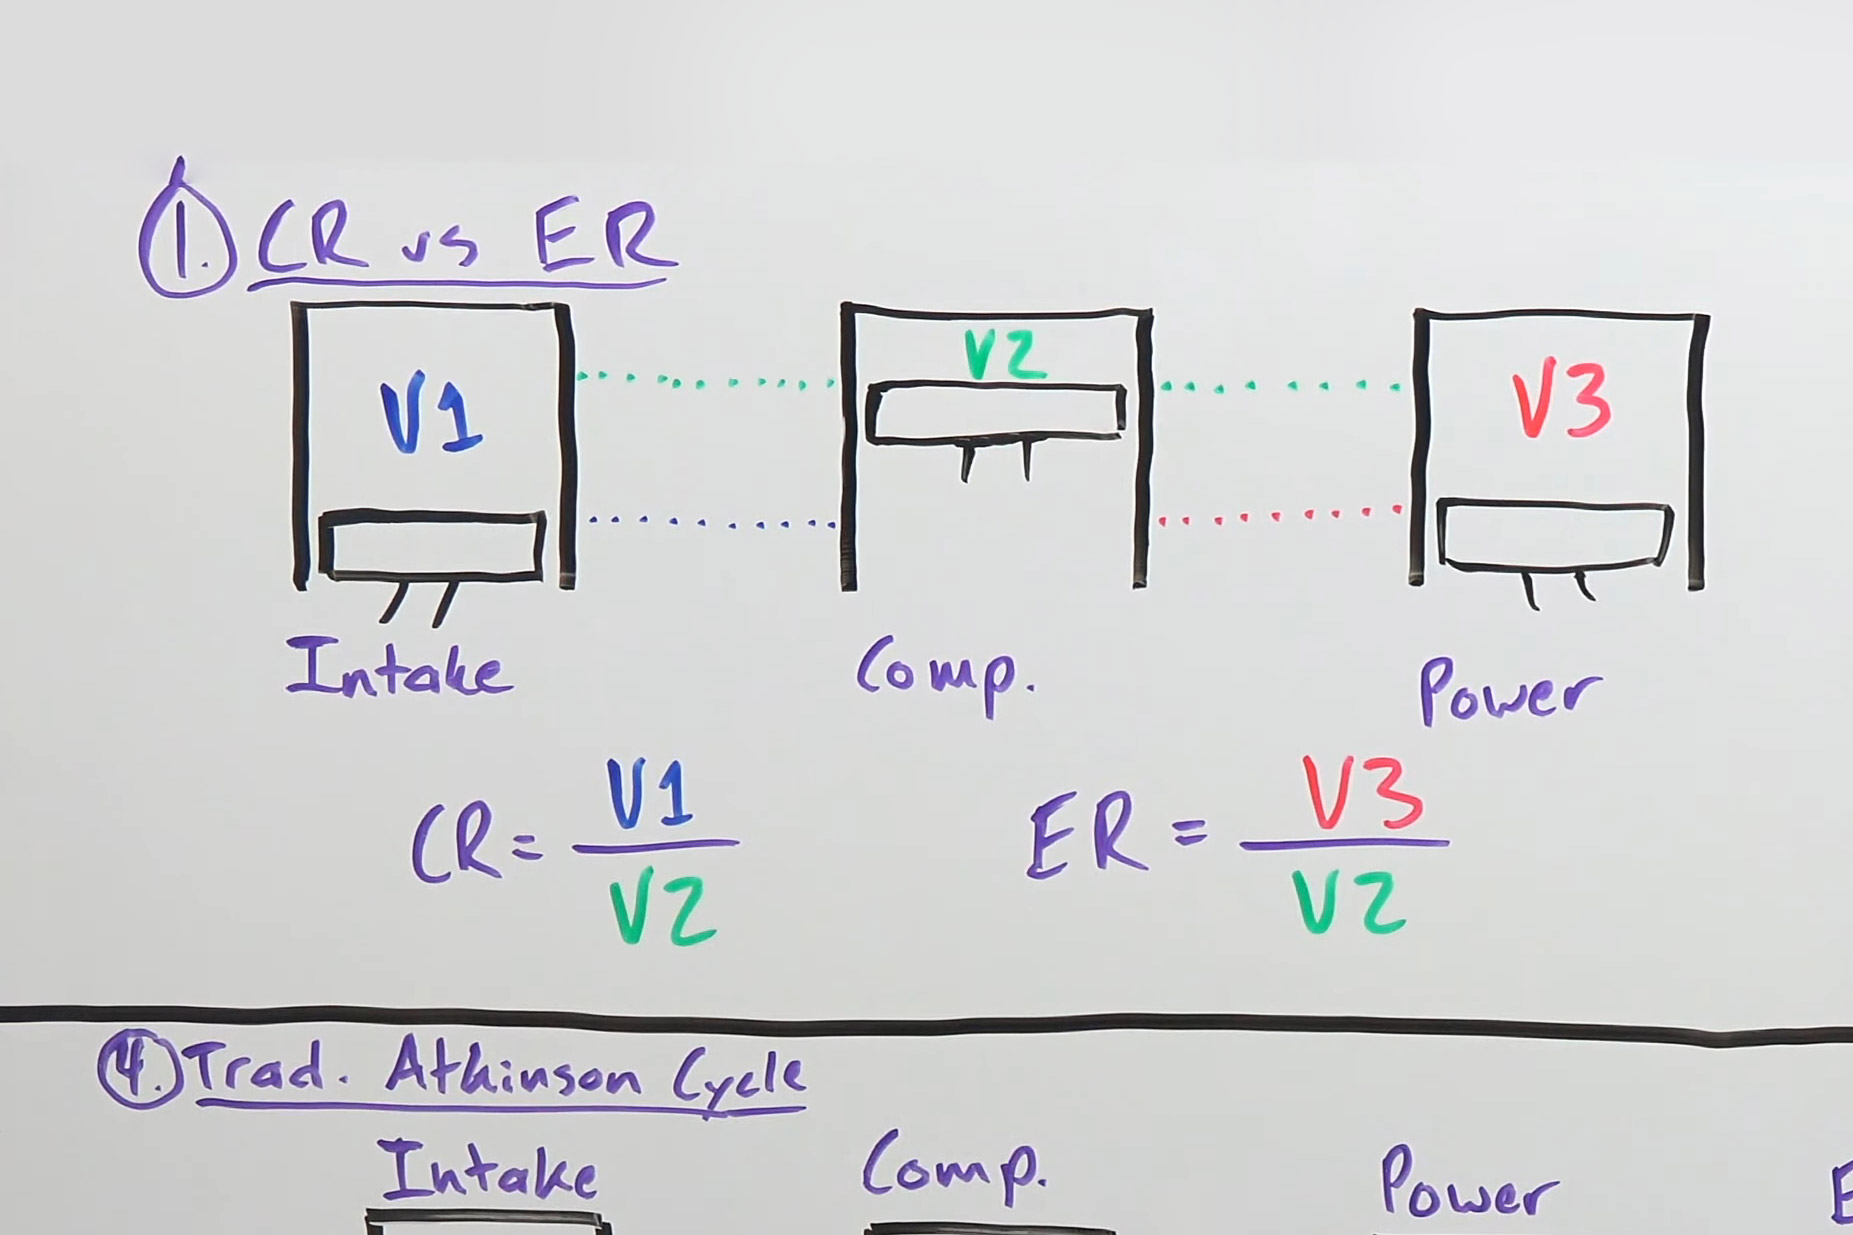 1. CR vs ER
V1
V2
V3
Intake
Comp.
Power
CR = V1
V2
ER = V3
V2
4. Trad. Atkinson Cycle
Intake
Comp.
Power